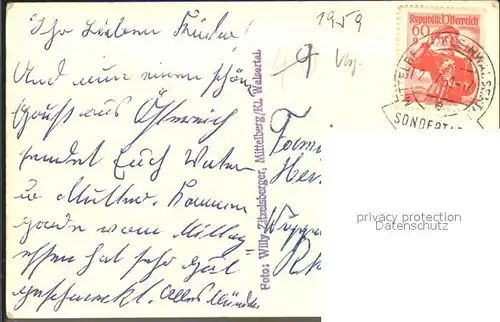 Ihr Lieben Kinder!
Und nun einen schön
Gruss aus Österreich
sendet Euch Vater
u Mutter. Kommen
grade vom Mittag-
essen hat sehr gut
geschmeckt. Alles
1959
Foto: Willy Zitzelsberger, Mittelberg/Kl. Walsertal.
Republik Österreich
60
g
MITTELBERG
KLEINWALSERTAL
SONDERTA
Fami
Her
Wupper
Rh
privacy protection
Datenschutz